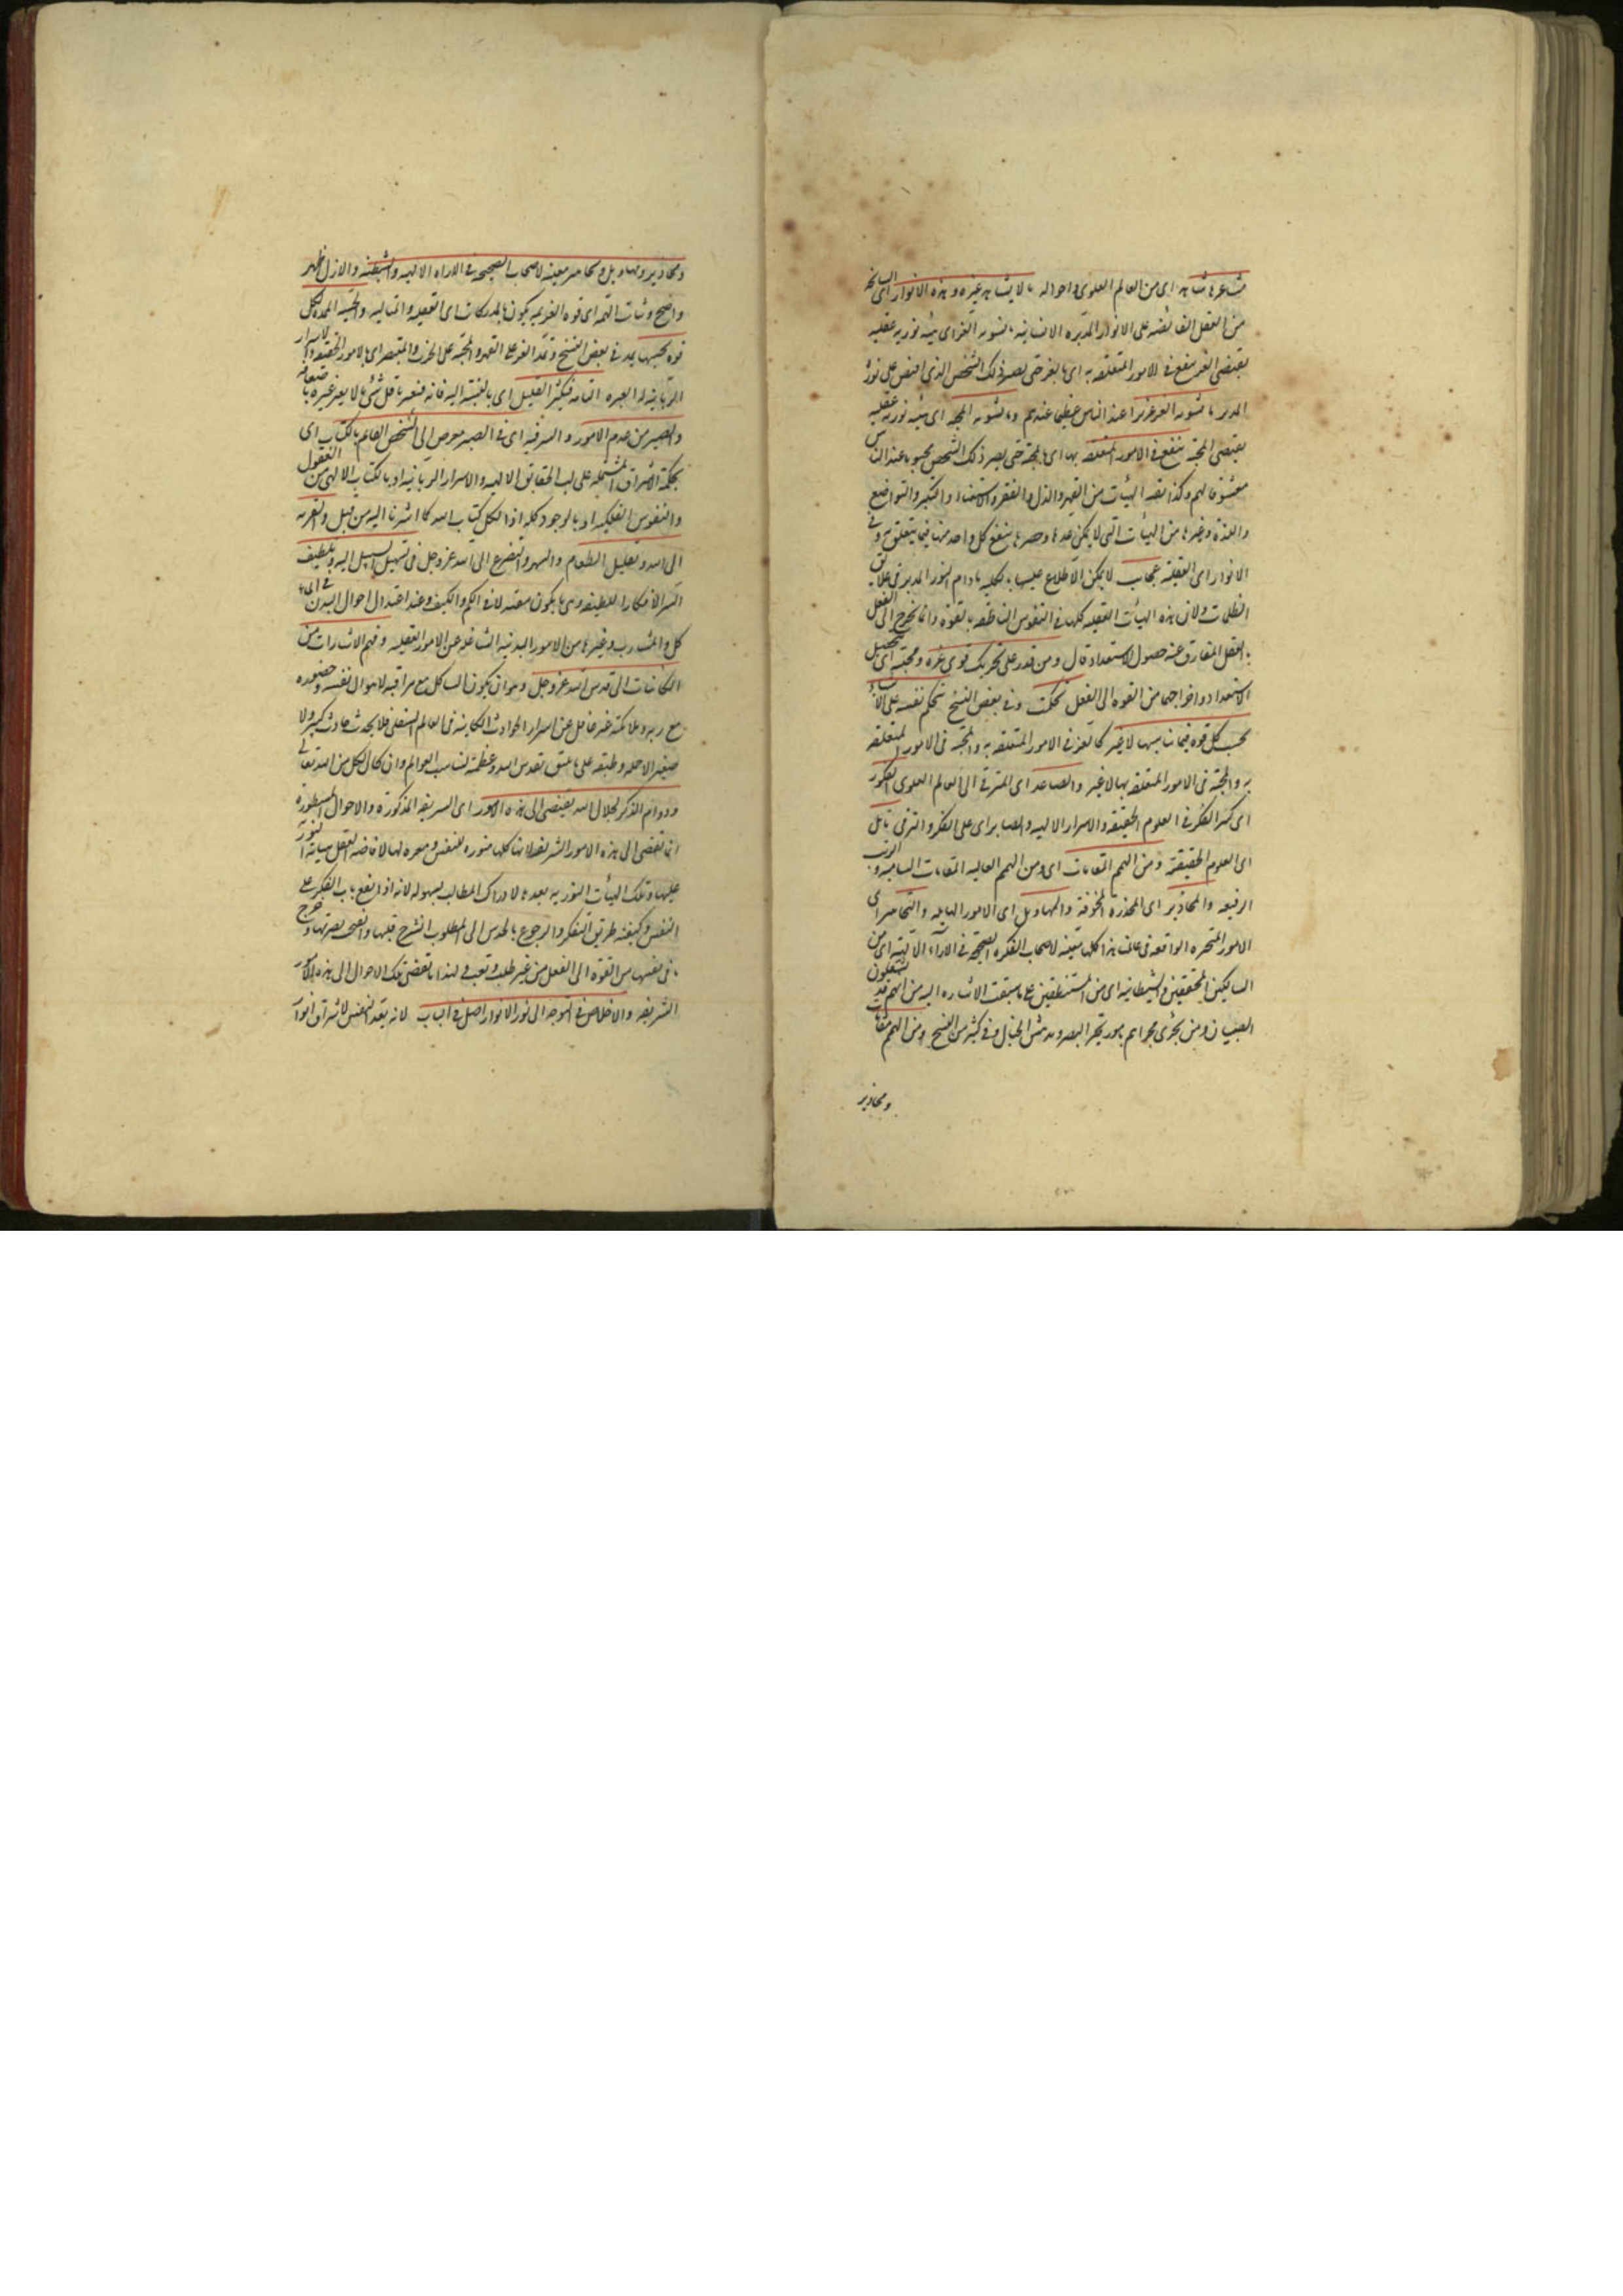 مشاعره شاهد اى من العالم العلوى واحواله ما لا يشاهد غيره وهذه الانوار اى السانحة
من العقل الفائضه على الانوار المدبره الانسانيه ما يشوبه العز اى هيئة نوريه عقليه
يقتضى العز ينفع فى الامور المتعلقه به اى بالعز حتى يصير ذلك الشخص الذى افيض على نوره
المدبر ما يشوبه العز عزيزا عند الناس عظيما عندهم وما يشوبه المحبه اى هيئة نوريه عقليه
يقتضى المحبه ينفع فى الامور المتعلقه بها اى بالمحبة حتى يصير ذلك الشخص محبوبا عند الناس
معشوقا لهم وكذا بقيه الهيئات من القهر والذل والفقر والاستغناء والتكبر والتواضع
واللذه وغيرها من الهيئات التى لا يمكن عدها وحصرها ينفع كل واحد منها فيما يتعلق به وفى
الانوار اى العقليه عجايب لا يمكن الاطلاع عليها بالكليه ما دام النور المدبر فى علايق
الظلمات ولان هذه الهيئات العقليه كلها فى النفوس الناطقه بالقوه وانما يخرج الى الفعل
بالعقل المفارق عند حصول الاستعداد قال ومن قدر على تحريك قوى عزه ومحبته اى بتحصيل
الاستعداد واخراجها من القوه الى الفعل تحكمت وفى بعض النسخ تحكم نفسه على الاشياء
بحسب كل قوه فيما يناسبها لا غير كالعز فى الامور المتعلقه به والمحبه فى الامور المتعلقه
به والمحبة فى الامور المتعلقه بها لا غير والصاعد اى المترقى الى العالم العلوى الفكور
اى كثير الفكر فى العلوم الحقيقيه والاسرار الالهيه والصابر اى على الفكر والترقى نايل
اى العلوم الحقيقية ومن الهمم المقامات اى ومن الهمم العاليه المقامات الساميه والمراتب
الرفيعه والمحاذير اى المحذره المخوفة والتهاويل اى الامور الهايله والتحاير اى
الامور المتحيره الواقعه فى عالمنا هذا كلها معينه لاصحاب الفكره الصحيحه فى الآراء الالهية اى من
السالكين المحققين والشيطانيه اى من المستنطقين على ما سبقت الاشاره اليه من انهم قد يشغلون
الصبيان ومن يجرى مجراهم بامور تحير البصر وتدهش الخيال وفى كثير من النسخ ومن الهمم مقامات
ومحاذير
ومحاذير وتهاويل وتحاير معينه لاصحاب الصحيحه فى الاراء الالهيه والشيطنه والاول ظهر
واضح وثبات الهمه اى قوه العزيمه يكون بالمدركات اى العقليه والمثاليه والحسيه الممده لكل
قوه بحسبها يمد فى بعض النسخ وتمد العز على القهر والمحبه على الجذب والمتبصر اى بالامور الحقيقيه والاسرار
الربانيه له العبره التامه فيكثر القليل اى بالنسبة اليه فانه فيعتبر باقل شئ ما لا يعتبر غيره باضعافه
والصبر من عزم الامور والسر فيه اى فى الصبر مفوض الى الشخص القائم بالكتاب اى
بحكمة الاشراق المشتمله على لب الحقايق الالهيه والاسرار الربانيه او بالكتاب الالهى من العقول
والنفوس الفلكيه او بالوجود كله اذ الكل كتاب الله كما اشرنا اليه من قبل والقربه
الى الله وتقليل الطعام والسهر والتضرع الى الله عز وجل فى تسهيل السبيل اليه وتلطيف
السر الافكار اللطيفه وهى ما يكون معتدله فى الكم والكيف وعند اعتدال احوال البدن فى
كل والمشارب وغيرها من الامور البدنيه الشاغله عن الامور العقليه وفهم الاشارات من
الكاينات الى قدس الله عز وجل وهو ان يكون السالك مع مراقبه لاحوال نفسه وحضوره
مع ربه وملائكته غير غافل عن اسرار الحوادث الكاينه فى العالم السفلى فلا يحدث حادث كبير ولا
صغير الا حمله وطبقه على ما يليق بقدس الله وعظمته لتناسب العوالم وان كمال الكل من الله تعالى
ودوام الذكر لجلال الله يفضى الى هذه الامور اى الشريفه المذكورة والاحوال المسطورة
انما تفضى الى هذه الامور الشريفه لانها كلها منوره للنفس ومعده لها لافاضه العقل هيئاته النوريه
عليها وتلك الهيئات النوريه يعدها لادراك المطالب بسهوله لانه اذا انفتح باب الفكر على
النفس وكيفيه طريق التفكر والرجوع بالحدس الى المطلوب انشرح قلبها وانفتح بصيرتها وخرج
ما فى نفسها من القوه الى الفعل من غير طلب وتعب ولهذا ما تفضى تلك الاحوال الى هذه الامور
الشريفه والاخلاص فى التوجه الى نور الانوار اصل فى الباب لانه يعد النفس لاشراق انوار